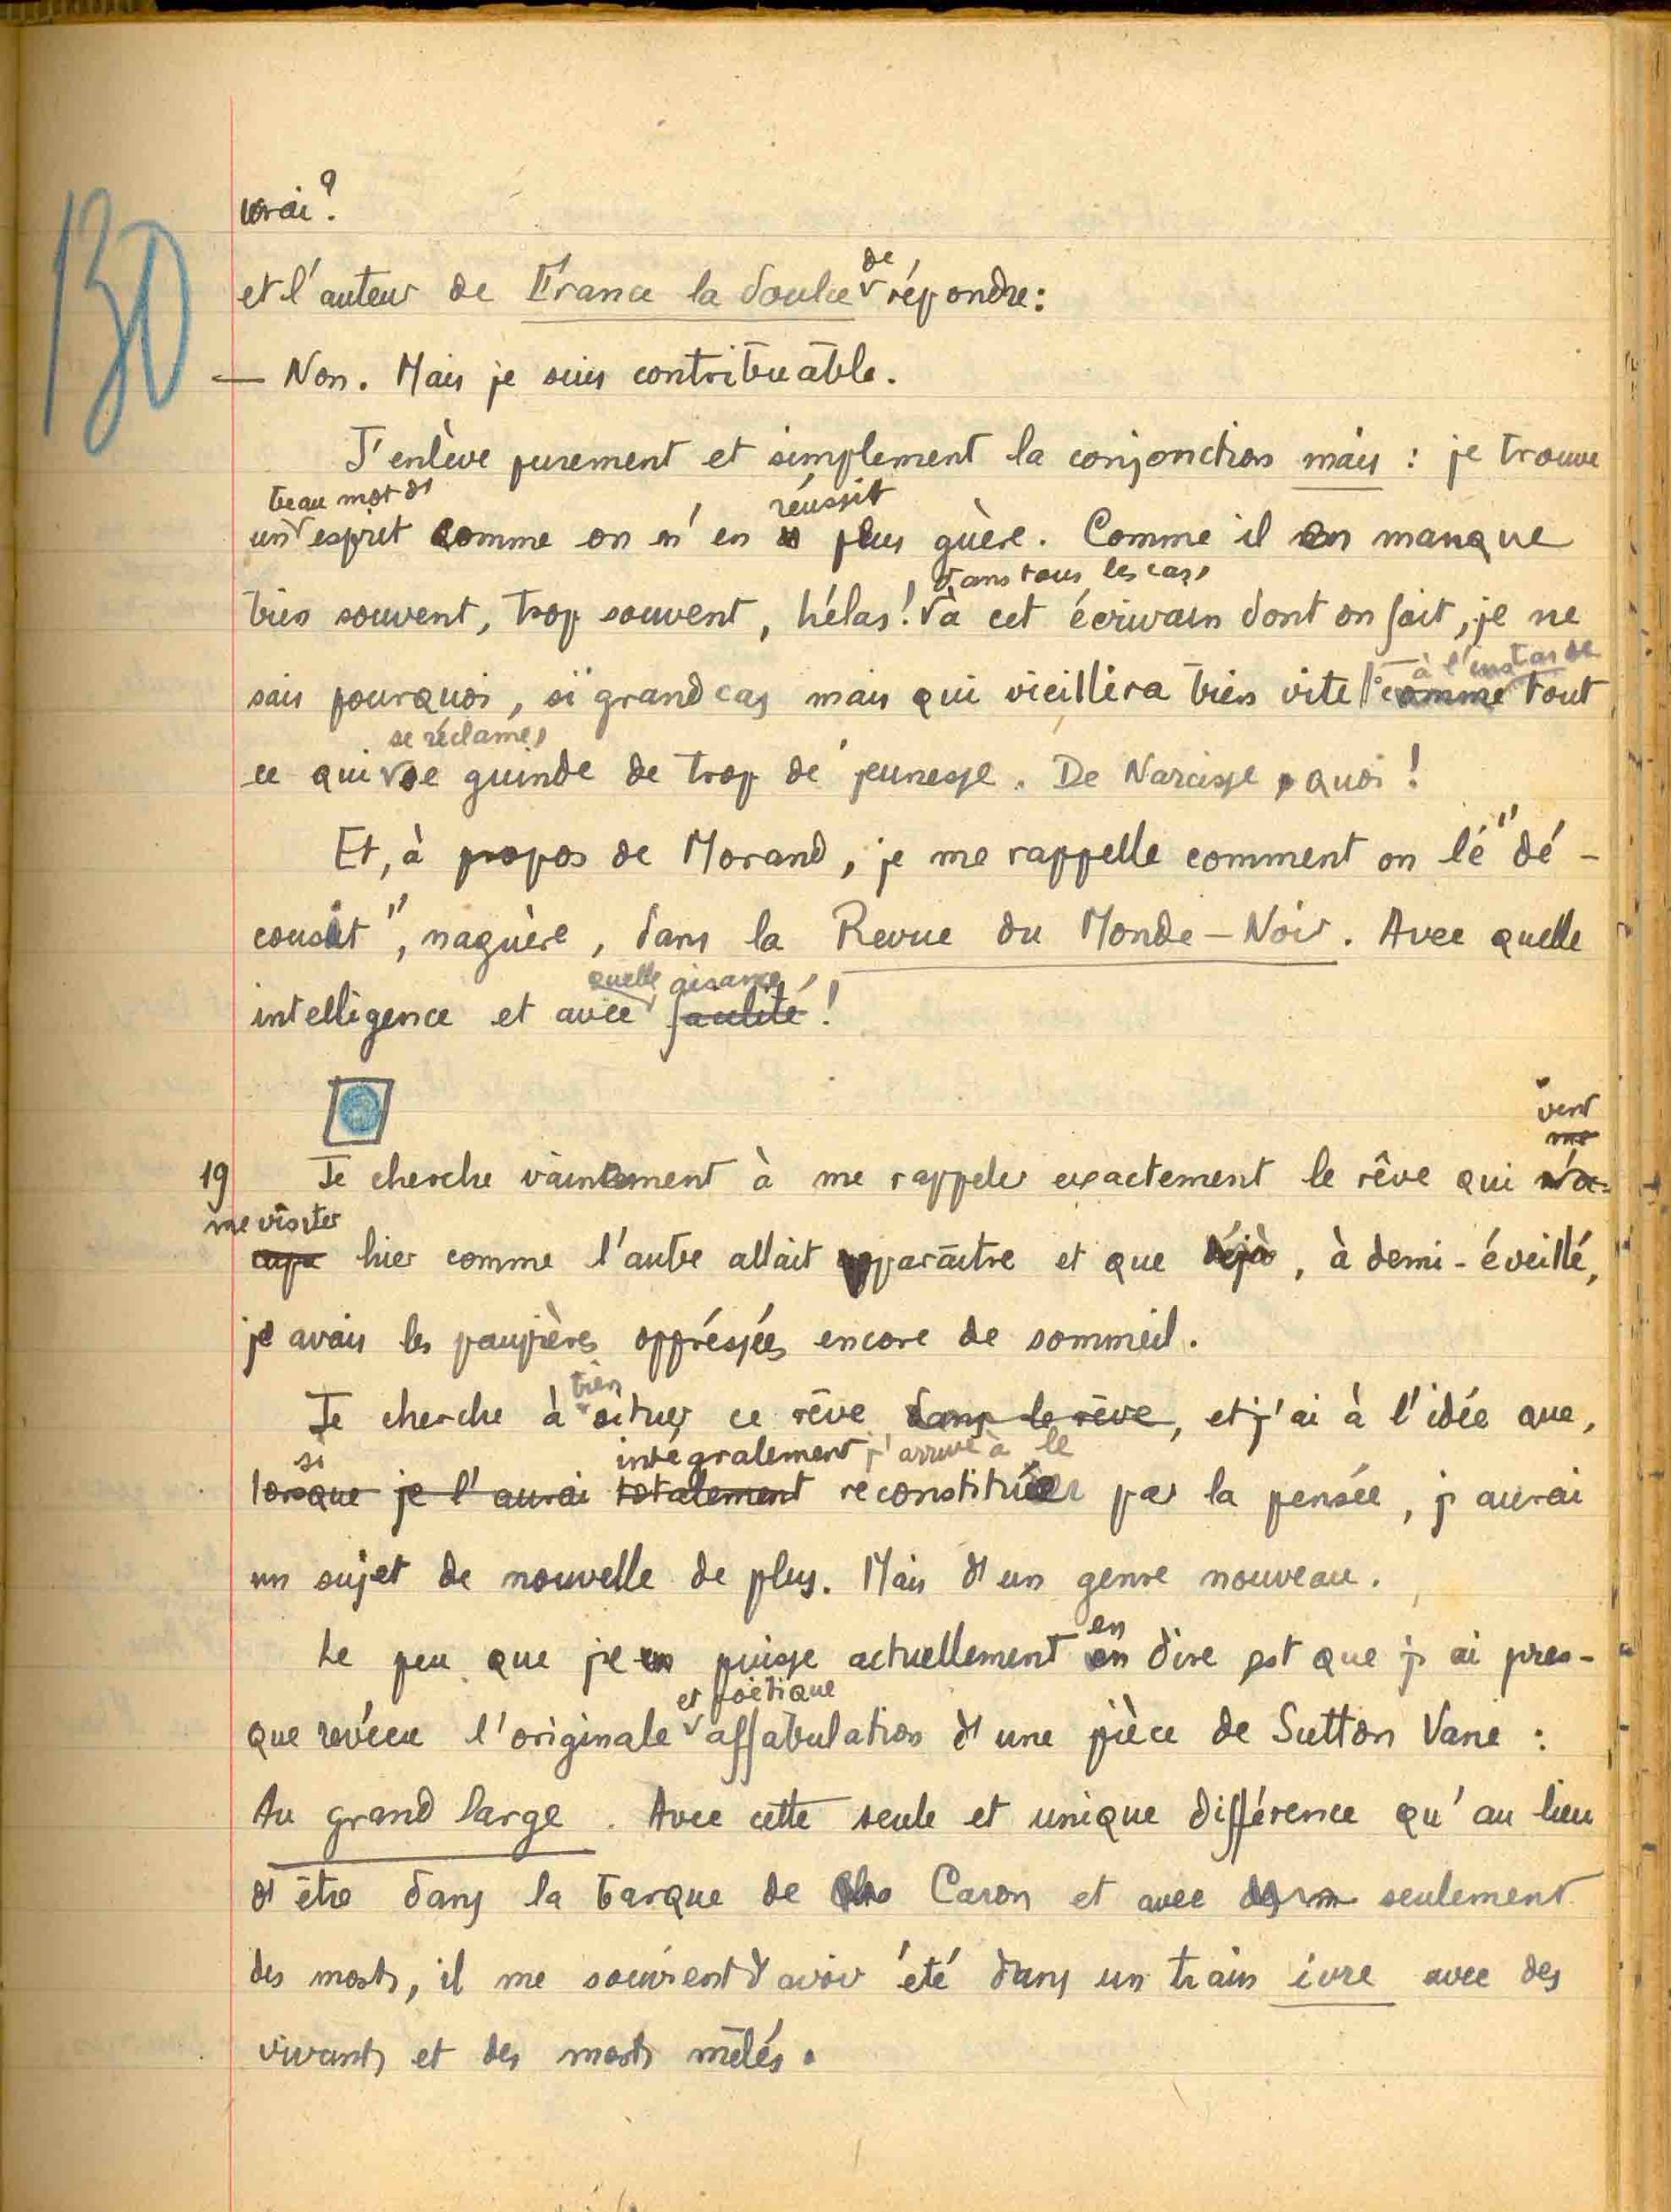 130
vrai ?
de
et l'auteur de France la doulce répondre :
— Non. Mais je suis contribuable.
J'enlève purement et simplement la conjonction mais : je trouve
beau mot d' réussit
un esprit comme on n'en plus guère. Comme il en manque
dans tous les cas,
bien souvent, trop souvent, hélas ! à cet écrivain dont on fait, je ne
à l'instar de
sais pourquoi, si grand cas mais qui vieillira bien vite comme tout
se réclame,
ce qui se guinde de trop de jeunesse. De Narcisse, quoi !
Et, à propos de Morand, je me rappelle comment on le "dé-
cousit", naguère, dans la Revue du Monde-Noir. Avec quelle
quelle aisance,
intelligence et avec facilité !
vient
me
19 Je cherche vainement à me rappeler exactement le rêve qui m'a
me visiter
hier comme l'autre allait apparaître et que déjà, à demi-éveillé,
je avais les paupières oppressées encore de sommeil.
bien
Je cherche à situer ce rêve dans le rêve, et j'ai à l'idée que,
si intégralement j'arrive à le
lorsque je l'aurai totalement reconstituer par la pensée, j'aurai
un sujet de nouvelle de plus. Mais d'un genre nouveau.
en
Le peu que je en puisse actuellement en dire est que j'ai pres-
et poétique
que revécu l'originale affabulation d'une pièce de Sutton Vane :
Au grand large. Avec cette seule et unique différence qu'au lieu
d'être dans la barque de Caron et avec seulement
des morts, il me souvient d'avoir été dans un train ivre avec des
vivants et des morts mêlés.